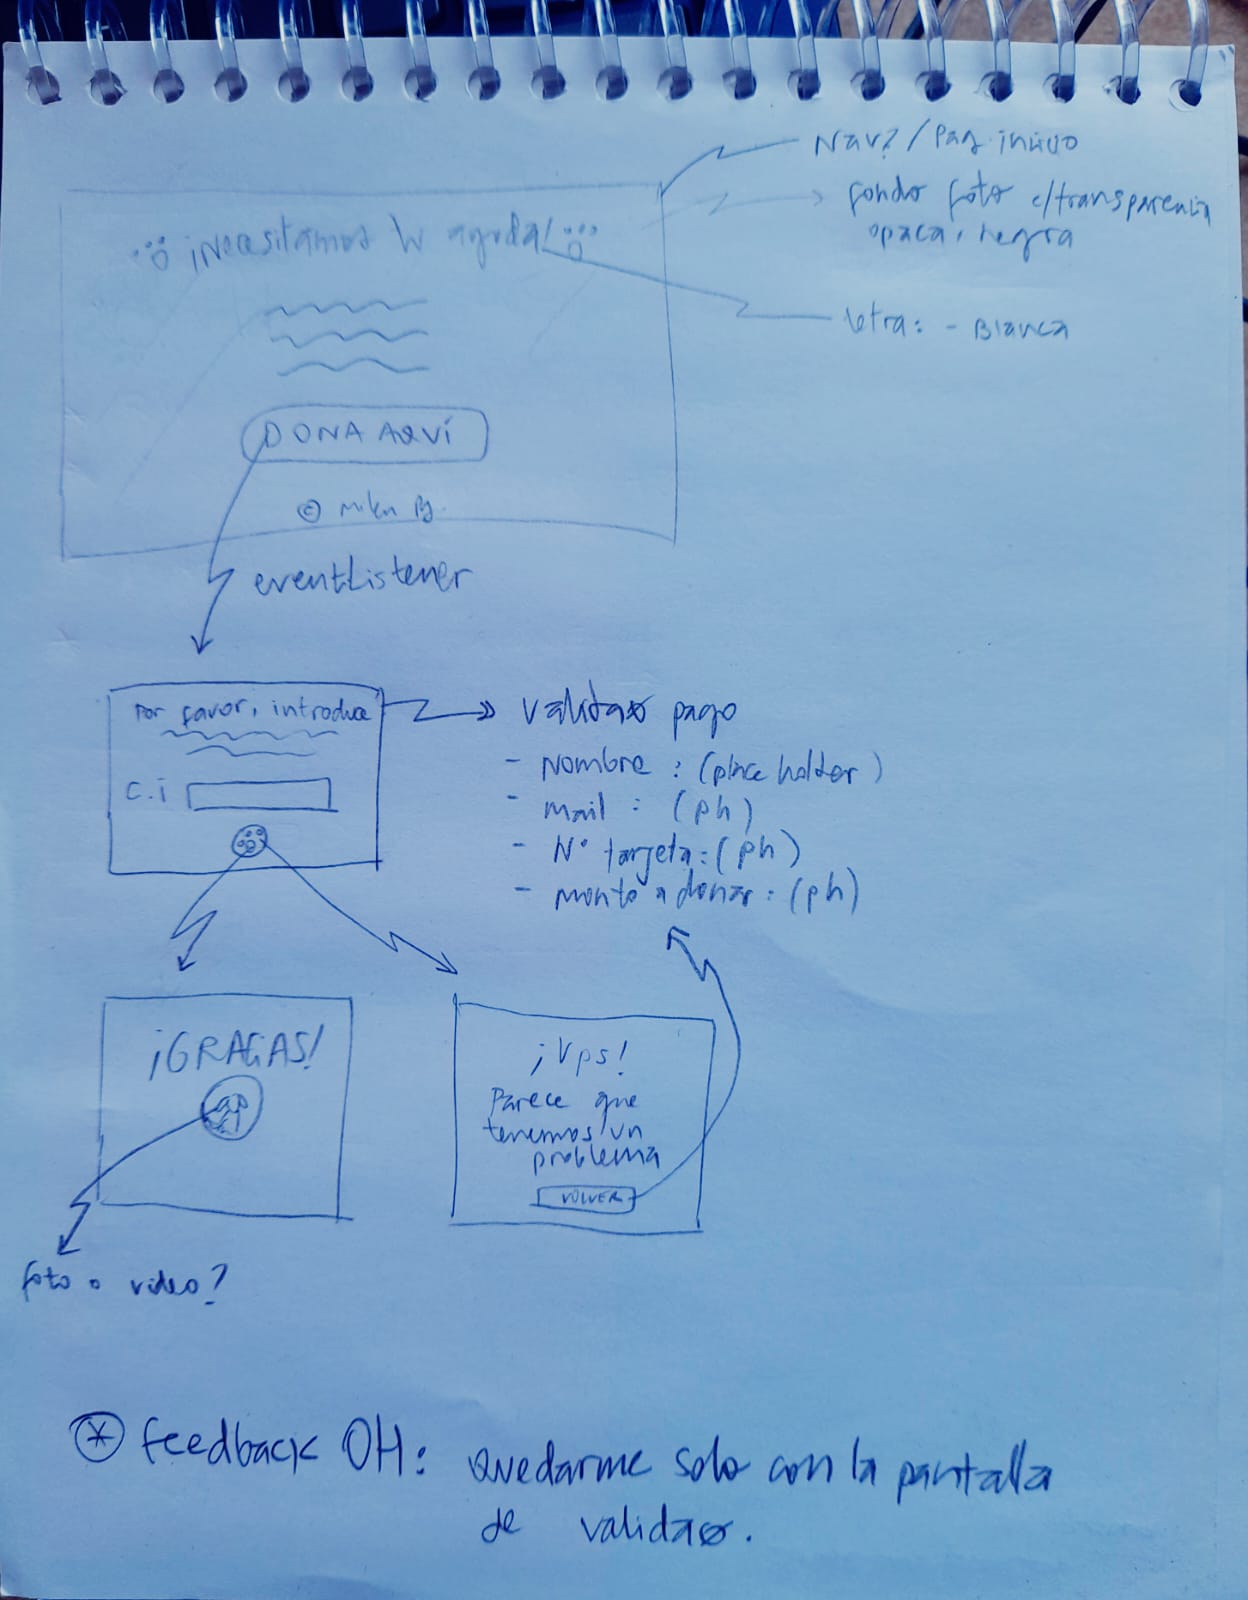 Nav? / Pag. inicio
fondo foto c/transparencia
opaca, negra
¡Necesitamos tu ayuda!
letra: - Blanca
DONA AQUÍ
© Miku
eventListener
Por favor, introduce
C.i
validar pago
- Nombre : (place holder)
- mail : (ph)
- N° tarjeta : (ph)
- monto a donar : (ph)
¡GRACIAS!
¡Ups!
Parece que
tenemos un
problema
VOLVER
foto o video?
* feedback OH: quedarme solo con la pantalla
de validar.